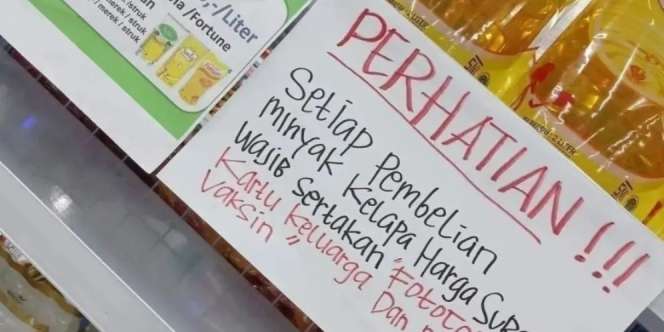 ,-/Liter
/Fortune
/ struk
merek / struk
merek / struk
PERHATIAN !!!
Setiap Pembelian
minyak Kelapa Harga
Wajib sertakan
Kartu Keluarga Dan
Vaksin "